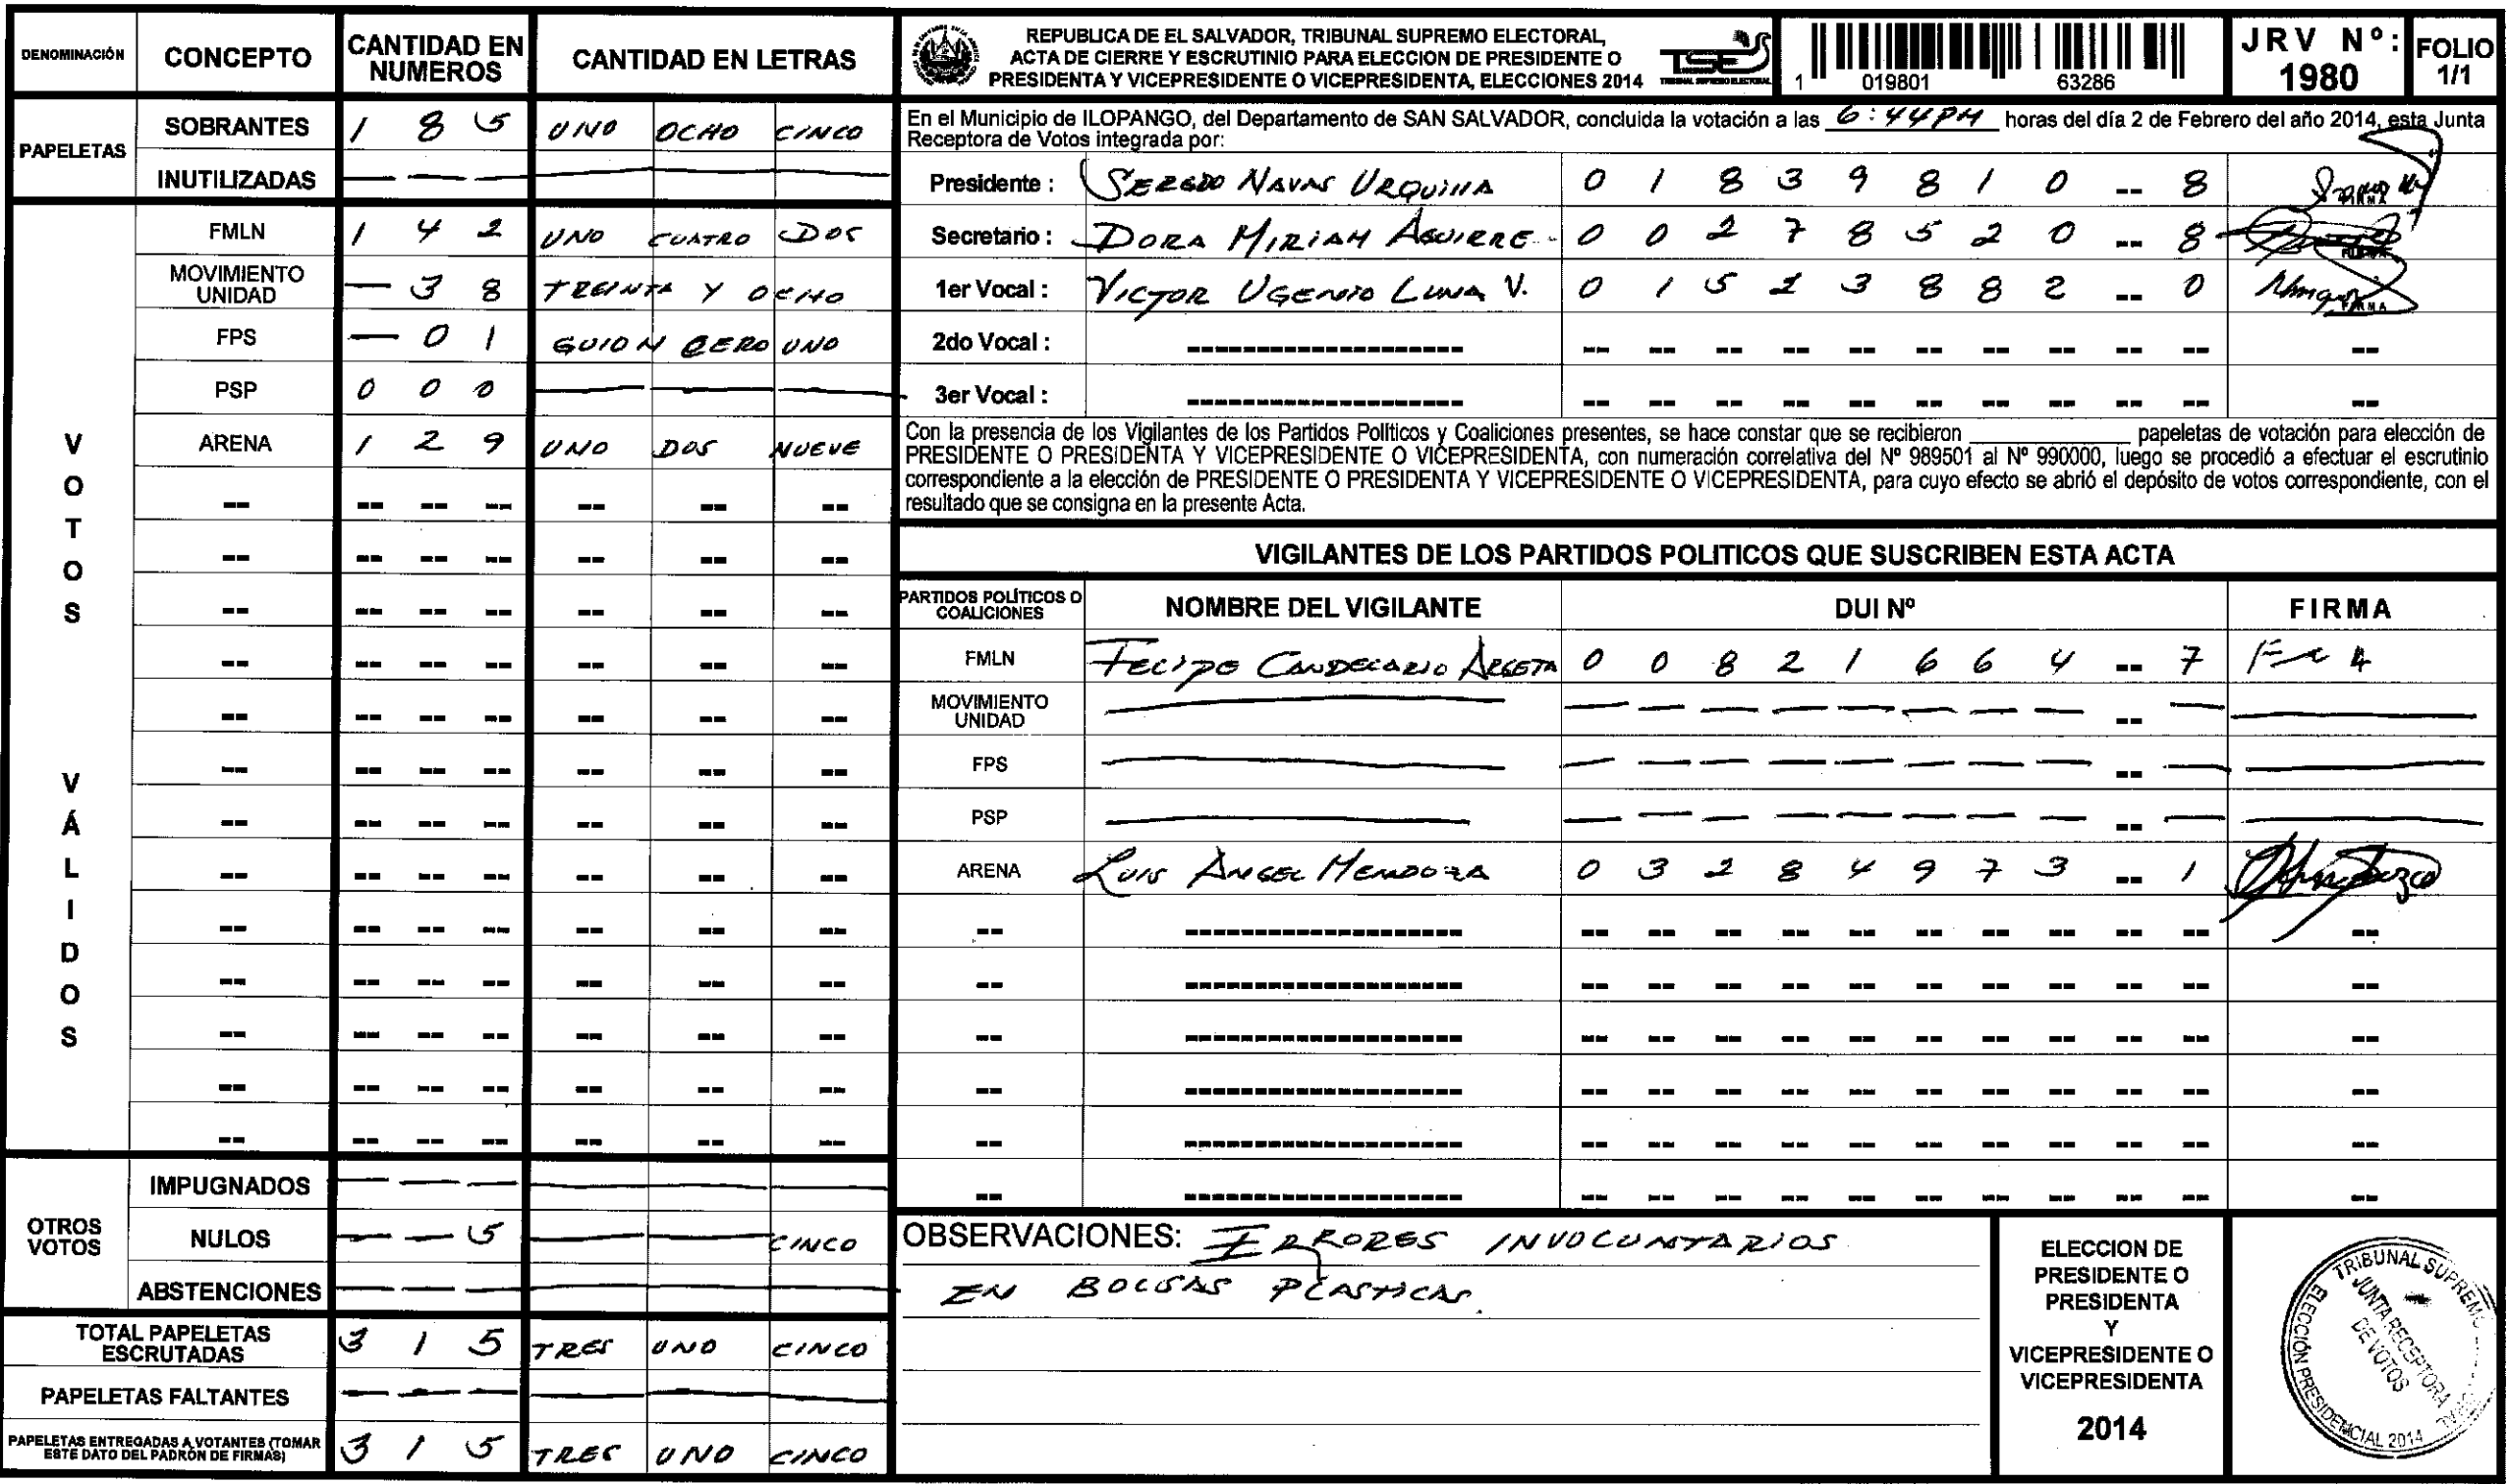 DENOMINACIÓN CONCEPTO CANTIDAD EN NUMEROS CANTIDAD EN LETRAS
PAPELETAS
SOBRANTES 1 8 5 UNO OCHO CINCO
INUTILIZADAS — — —
VOTOS VÁLIDOS
FMLN 1 4 2 UNO CUATRO DOS
MOVIMIENTO UNIDAD — 3 8 TREINTA Y OCHO
FPS — 0 1 GUION CERO UNO
PSP 0 0 0 — — —
ARENA 1 2 9 UNO DOS NUEVE
OTROS VOTOS
IMPUGNADOS — — —
NULOS — — 5 — — CINCO
ABSTENCIONES — — —
TOTAL PAPELETAS ESCRUTADAS 3 1 5 TRES UNO CINCO
PAPELETAS FALTANTES — — —
PAPELETAS ENTREGADAS A VOTANTES (TOMAR ESTE DATO DEL PADRÓN DE FIRMAS) 3 1 5 TRES UNO CINCO
REPUBLICA DE EL SALVADOR, TRIBUNAL SUPREMO ELECTORAL,
ACTA DE CIERRE Y ESCRUTINIO PARA ELECCION DE PRESIDENTE O
PRESIDENTA Y VICEPRESIDENTE O VICEPRESIDENTA, ELECCIONES 2014
TSE
TRIBUNAL SUPREMO ELECTORAL
1 019801 63286
JRV Nº: 1980
FOLIO 1/1
En el Municipio de ILOPANGO, del Departamento de SAN SALVADOR, concluida la votación a las 6:44PM horas del día 2 de Febrero del año 2014, esta Junta
Receptora de Votos integrada por:
Presidente : SERGIO NAVAS URQUILLA 0 1 8 3 9 8 1 0 -- 8
Secretario : DORA MIRIAM AGUIRRE 0 0 2 7 8 5 2 0 -- 8
1er Vocal : VICTOR UGENIO LUNA V. 0 1 5 2 3 8 8 2 -- 0
2do Vocal :
3er Vocal :
Con la presencia de los Vigilantes de los Partidos Políticos y Coaliciones presentes, se hace constar que se recibieron ________ papeletas de votación para elección de
PRESIDENTE O PRESIDENTA Y VICEPRESIDENTE O VICEPRESIDENTA, con numeración correlativa del Nº 989501 al Nº 990000, luego se procedió a efectuar el escrutinio
correspondiente a la elección de PRESIDENTE O PRESIDENTA Y VICEPRESIDENTE O VICEPRESIDENTA, para cuyo efecto se abrió el depósito de votos correspondiente, con el
resultado que se consigna en la presente Acta.
VIGILANTES DE LOS PARTIDOS POLITICOS QUE SUSCRIBEN ESTA ACTA
PARTIDOS POLÍTICOS O COALICIONES NOMBRE DEL VIGILANTE DUI Nº FIRMA
FMLN FELIPE CANDELARIO ARGETA 0 0 8 2 1 6 6 4 -- 7
MOVIMIENTO UNIDAD
FPS
PSP
ARENA LUIS ANGEL MENDOZA 0 3 2 8 4 9 7 3 -- 1
OBSERVACIONES: ERRORES INVOLUNTARIOS
EN BOLSAS PLASTICAS.
ELECCION DE
PRESIDENTE O
PRESIDENTA
Y
VICEPRESIDENTE O
VICEPRESIDENTA
2014
TRIBUNAL SUPREMO
JUNTA RECEPTORA DE VOTOS
ELECCIÓN PRESIDENCIAL 2014